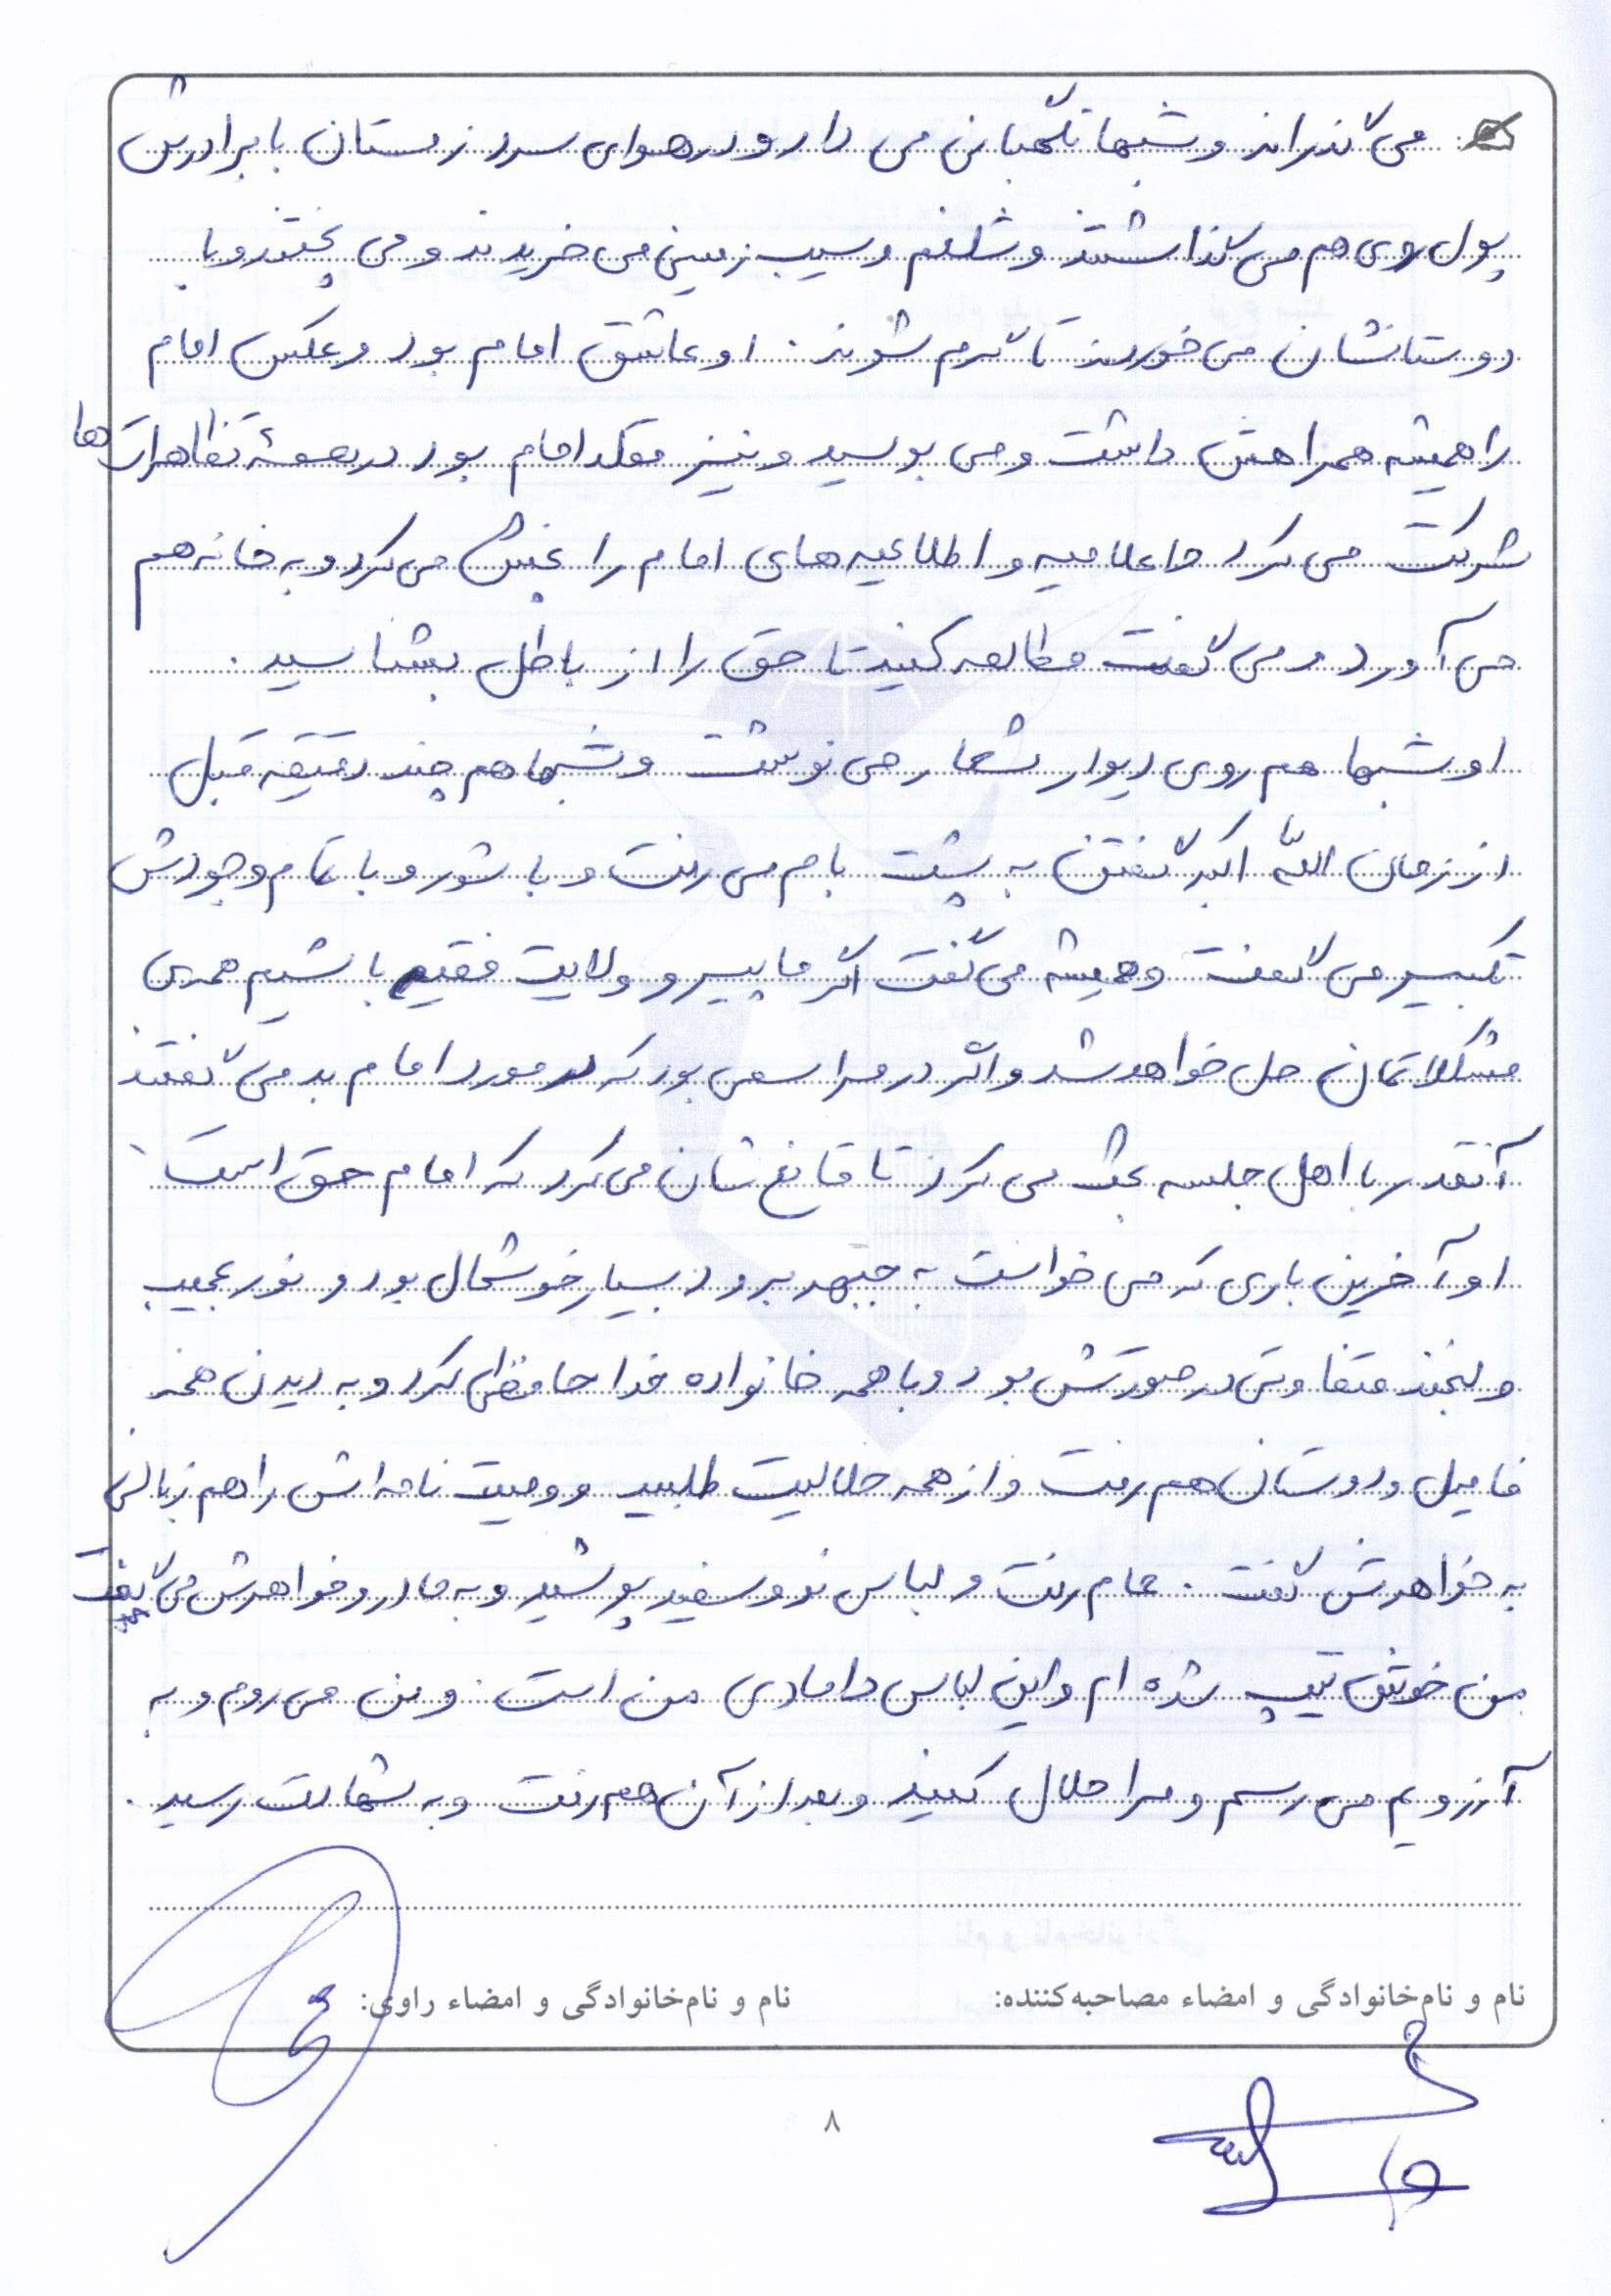 می گذراند و شبها نگهبانی می داد و در هوای سرد زمستان با برادرش
پول روی هم می گذاشتند و شلغم و سیب زمینی می خریدند و می پختند و با
دوستانشان می خوردند تا گرم شوند. او عاشق امام بود و عکس امام
را همیشه همراهش داشت و می بوسید و نیز مقلد امام بود در همهٔ تظاهرات ها
شرکت می کرد و اعلامیه و اطلاعیه های امام را پخش می کرد و به خانه هم
می آورد و می گفت مطالعه کنید تا حق را از باطل بشناسید.
او شبها هم روی دیوار شعار می نوشت و شبها هم چند دقیقه قبل
از زمان اللّه اکبر گفتن به پشت بام می رفت و با شور و با تمام وجودش
تکبیر می گفت و همیشه می گفت اگر ما پیرو ولایت فقیه باشیم همه ی
مشکلاتمان حل خواهد شد و اگر در مراسمی بود که در مورد امام بد می گفتند
آنقدر با اهل جلسه بحث می کرد تا قانع شان می کرد که امام حق است
او آخرین باری که می خواست به جبهه برود بسیار خوشحال بود و نور عجیب
و لبخند متفاوتی در صورتش بود و با همه خانواده خداحافظی کرد و به دیدن همه
فامیل و دوستان هم رفت و از همه حلالیت طلبید و وصیت نامه اش را هم زبانی
به خواهرش گفت. حمام رفت و لباس نو و سفید پوشید و به مادر و خواهرش می گفت
من خوش تیپ شده ام و این لباس دامادی من است. و من می روم و به
آرزویم می رسم و مرا حلال کنید و بعد از آن هم رفت و به شهادت رسید.
نام و نام‌خانوادگی و امضاء مصاحبه‌کننده: نام و نام‌خانوادگی و امضاء راوی:
۸